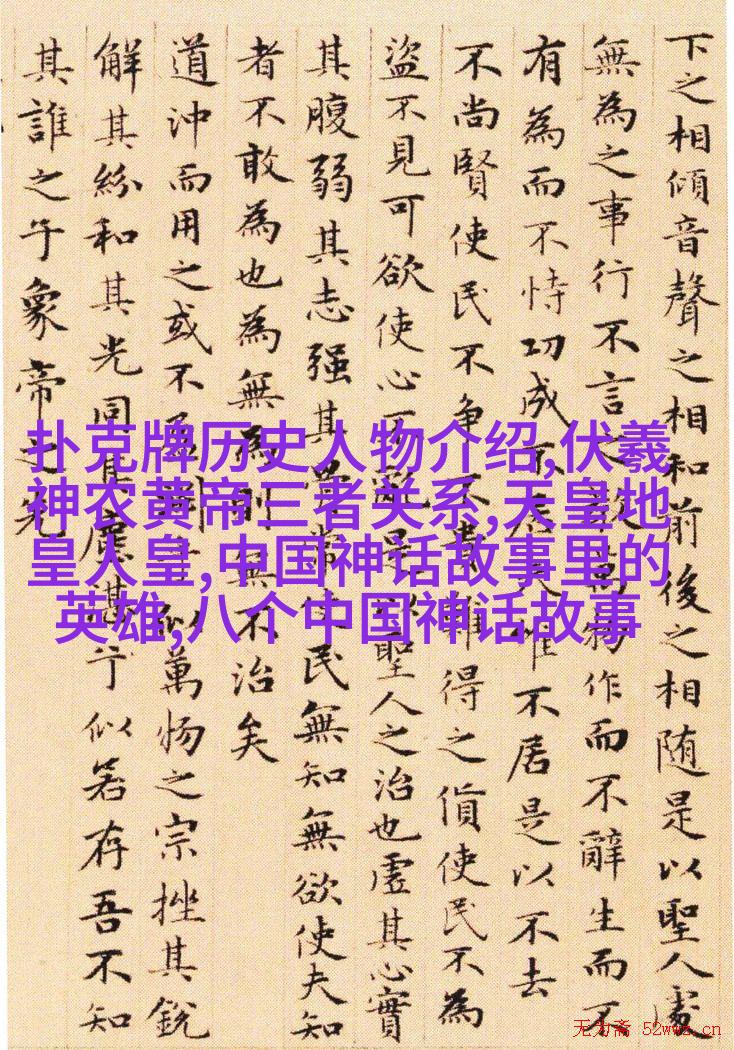 下之相傾音聲之相和前後之相随是以聖人處
無為之事行不言之教萬物作而不辭生而不
有為而不恃功成不居夫惟不居是以不去
不尚賢使民不争不貴難得之貨使民不為
盜不見可欲使心不亂是以聖人之治也虛其心實
其腹弱其志强其常使民無知無欲使夫知
者不敢為也為無為則無不治矣
道沖而用之或不盈似萬物之宗挫其銳
解其紛和其光同其塵湛乎似若存吾不知
其誰之子象帝之先
扑克牌历史人物介绍,伏羲
神农黄帝三者关系,天皇地
皇人皇,中国神话故事里的
英雄,八个中国神话故事
无为斋 52wwz.cn